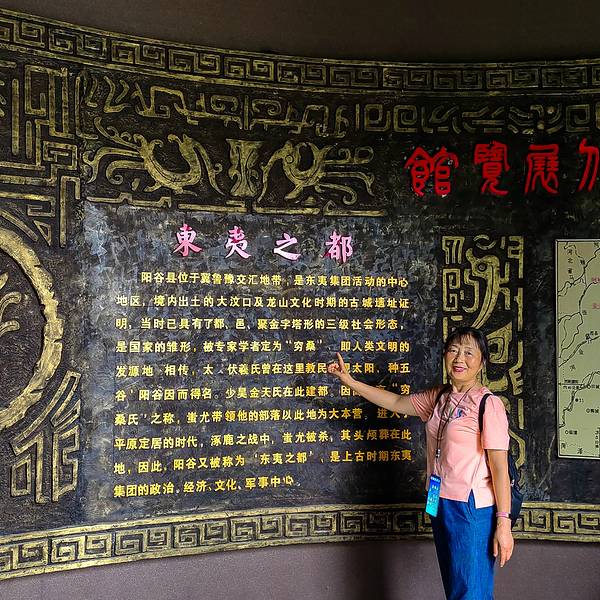 展覽館
東夷之都
阳谷县位于冀鲁豫交汇地带，是东夷集团活动的中心
地区，境内出土的大汶口及龙山文化时期的古城遗址证
明，当时已具有了都、邑、聚金字塔形的三级社会形态，
是国家的雏形，被专家学者定为“穷桑”，即人类文明的
发源地。相传，太 伏羲氏曾在这里教民 观太阳，种五
谷，阳谷因而得名。少昊金天氏在此建都，因 “穷
桑氏”之称，蚩尤带领他的部落以此地为大本营，进入
平原定居的时代，涿鹿之战中，蚩尤被杀，其头颅葬在此
地，因此，阳谷又被称为‘东夷之都’，是上古时期东夷
集团的政治、经济、文化、军事中心
河北省